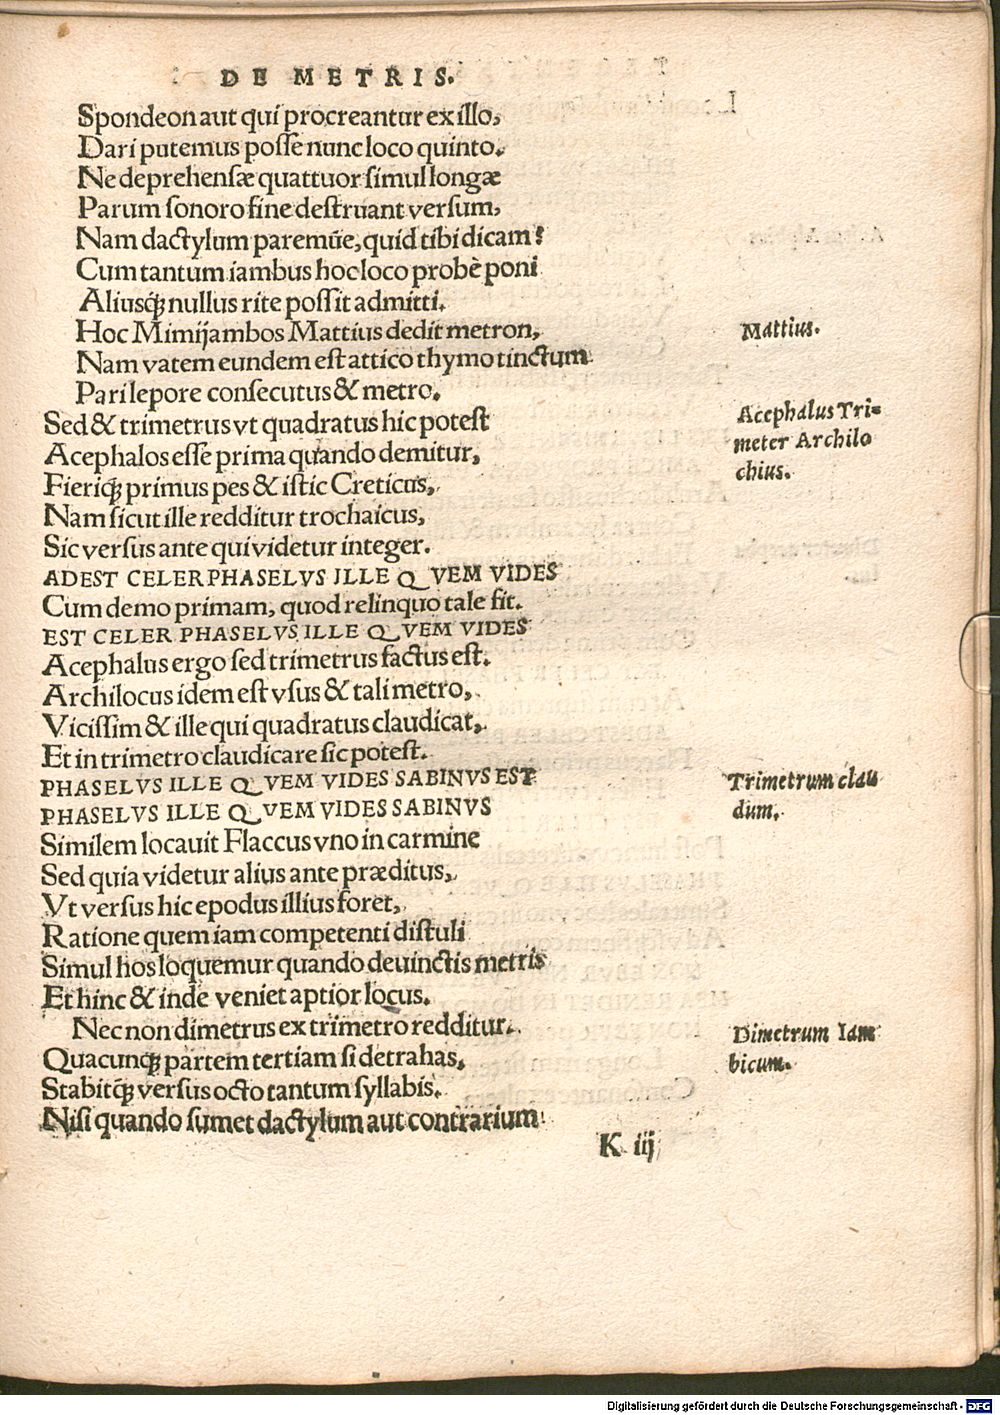 DE METRIS.
Spondeon aut qui procreantur ex illo,
Dari putemus posse nunc loco quinto.
Ne deprehensæ quattuor simul longæ
Parum sonoro fine destruant versum,
Nam dactylum paremũe, quid tibi dicam?
Cum tantum iambus hoc loco probè poni
Aliusq́; nullus rite possit admitti.
Hoc Mimijambos Mattius dedit metron,
Mattius.
Nam vatem eundem est attico thymo tinctum
Pari lepore consecutus & metro.
Sed & trimetrus vt quadratus hic potest
Acephalos esse prima quando demitur,
Acephalus Tri-
meter Archilo
chius.
Fieriq́; primus pes & istic Creticus,
Nam sicut ille redditur trochaicus,
Sic versus ante qui videtur integer.
ADEST CELER PHASELVS ILLE QVEM VIDES
Cum demo primam, quod relinquo tale fit.
EST CELER PHASELVS ILLE QVEM VIDES
Acephalus ergo sed trimetrus factus est.
Archilocus idem est vsus & tali metro,
Vicissim & ille qui quadratus claudicat,
Et in trimetro claudicare sic potest.
PHASELVS ILLE QVEM VIDES SABINVS EST
Trimetrum clau
dum.
PHASELVS ILLE QVEM VIDES SABINVS
Similem locauit Flaccus vno in carmine
Sed quia videtur alius ante præditus,
Vt versus hic epodus illius foret,
Ratione quem iam competenti distuli
Simul hos loquemur quando deuinctis metris
Et hinc & inde veniet aptior locus.
Nec non dimetrus ex trimetro redditur.
Dimetrum Iam
bicum.
Quacunq́; partem tertiam si detrahas,
Stabitq́; versus octo tantum syllabis.
Nisi quando sumet dactylum aut contrarium
K iij
Digitalisierung gefördert durch die Deutsche Forschungsgemeinschaft - DFG